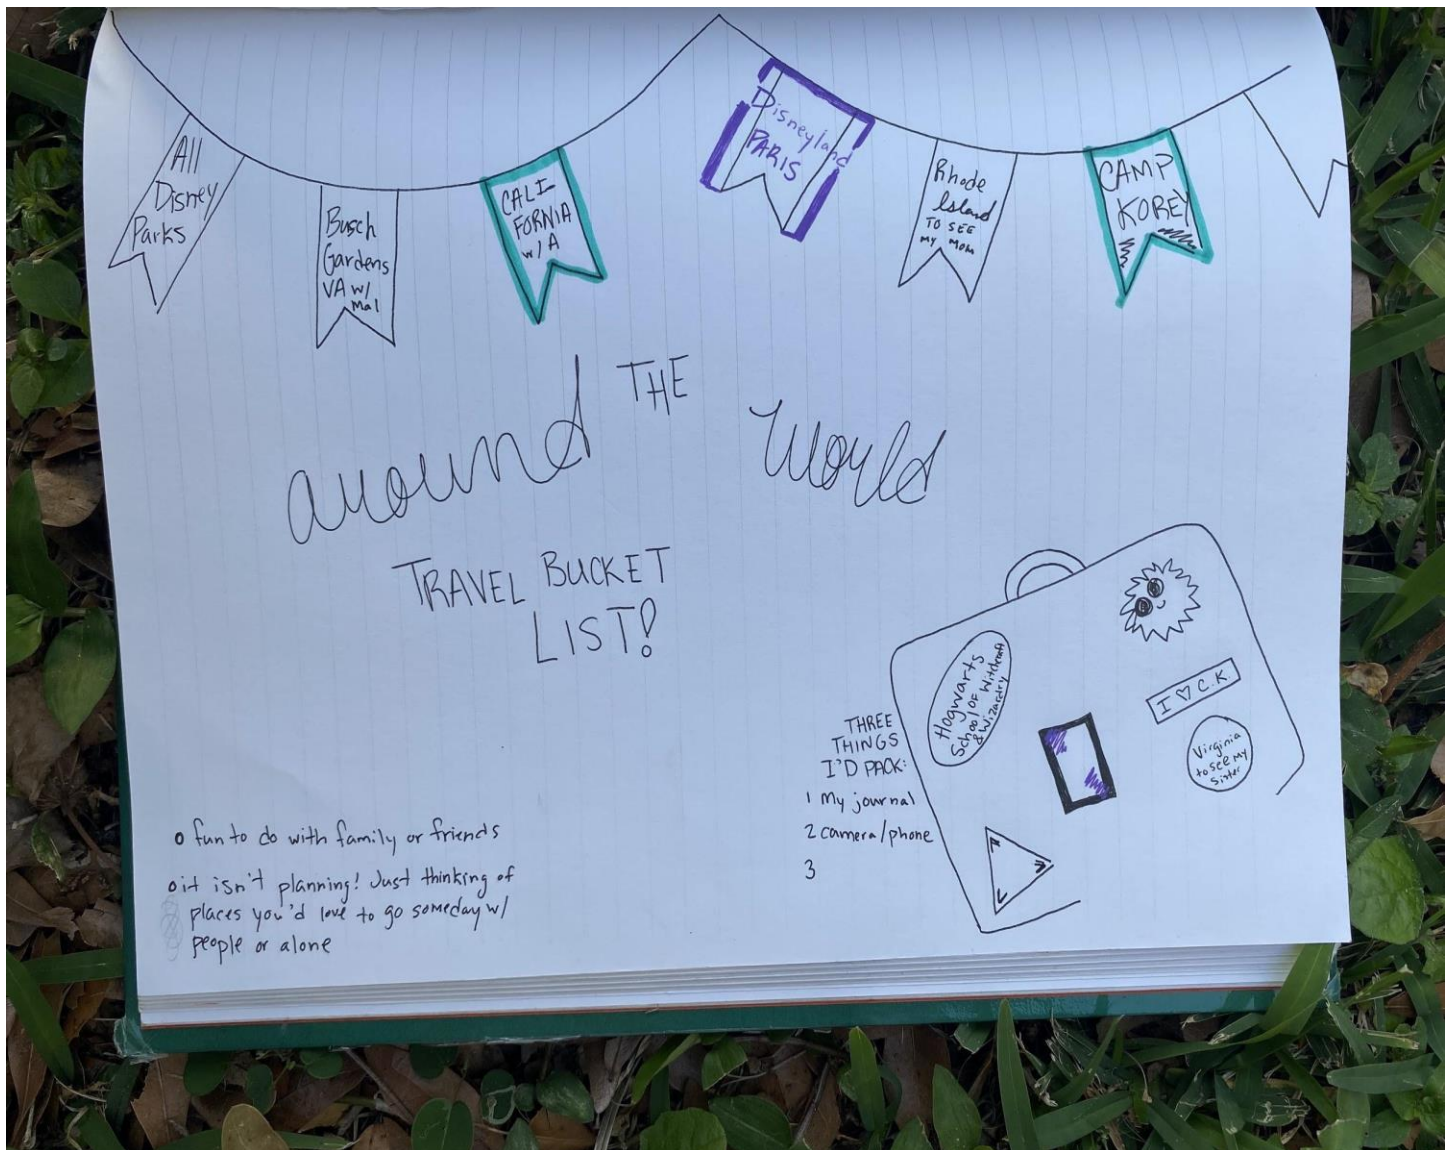 All
Disney
Parks
Busch
Gardens
VA w/
Mal
CALI
FORNIA
w/A
Disneyland
PARIS
Rhode
Island
TO SEE
MY MOM
CAMP
KOREY
around THE world
TRAVEL BUCKET
LIST!
Hogwarts
School OF Witchcraft
& Wizardry
I ♡ C.K.
Virginia
to see my
sister
THREE
THINGS
I'D PACK:
1 My journal
2 camera/phone
3
o fun to do with family or friends
o it isn't planning! Just thinking of
places you'd love to go someday w/
people or alone